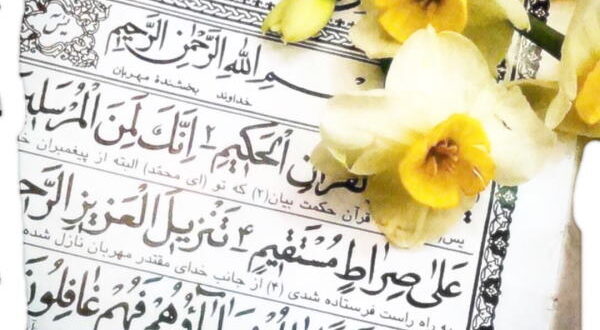 یس
سْمِ اللهِ الرَّحْمنِ الرَّحيمِ
خداوند بخشندهٔ مهربان
لْقُرآنِ الْحَكيمِ ۲ اِنَّكَ لَمِنَ الْمُرْسَلي
یس/ قرآن حکمت بیان(۲) که تو (ای محمّد) البته از پیغمبران
عَلى صِراطٍ مُسْتَقيمٍ ۴ تَنْزيلَ الْعَزيزِ الرَّح
به راه راست فرستاده شدی (۴) از جانب خدای مقتدر مهربان نازل شده
آؤُهُمْ فَهُمْ غافِلُونَ